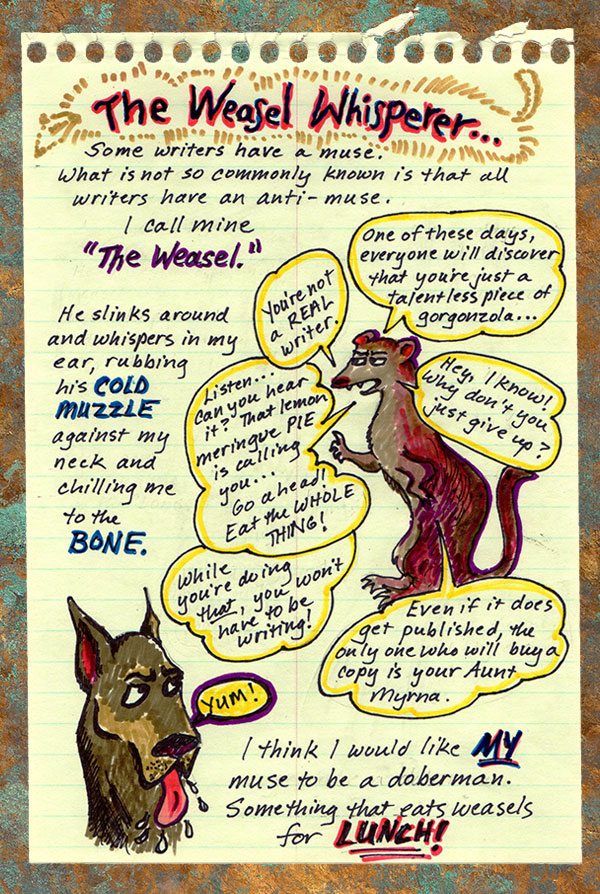 The Weasel Whisperer...
Some writers have a muse.
What is not so commonly known is that all
writers have an anti-muse.
I call mine
"The Weasel."
He slinks around
and whispers in my
ear, rubbing
his COLD
MUZZLE
against my
neck and
chilling me
to the
BONE.
You're not
a REAL
writer.
One of these days,
everyone will discover
that you're just a
talentless piece of
gorgonzola...
Hey, I know!
Why don't you
just give up?
Listen...
can you hear
it? That lemon
meringue PIE
is calling
you...
Go ahead!
Eat the WHOLE
THING!
While
you're doing
that, you won't
have to be
writing!
Even if it does
get published, the
only one who will buy a
copy is your Aunt
Myrna.
YUM!
I think I would like MY
muse to be a doberman.
Something that eats weasels
for LUNCH!